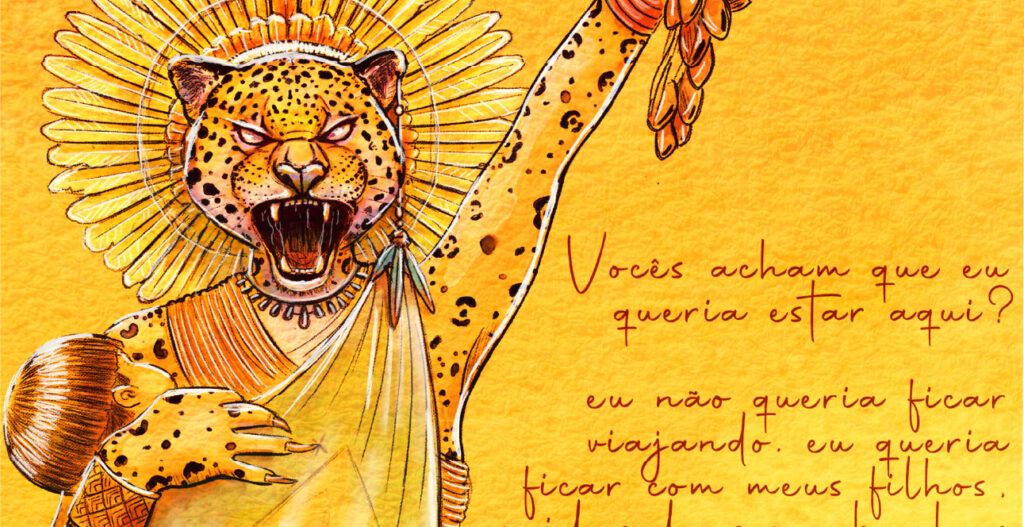 Vocês acham que eu
queria estar aqui?
eu não queria ficar
viajando. eu queria
ficar com meus filhos,